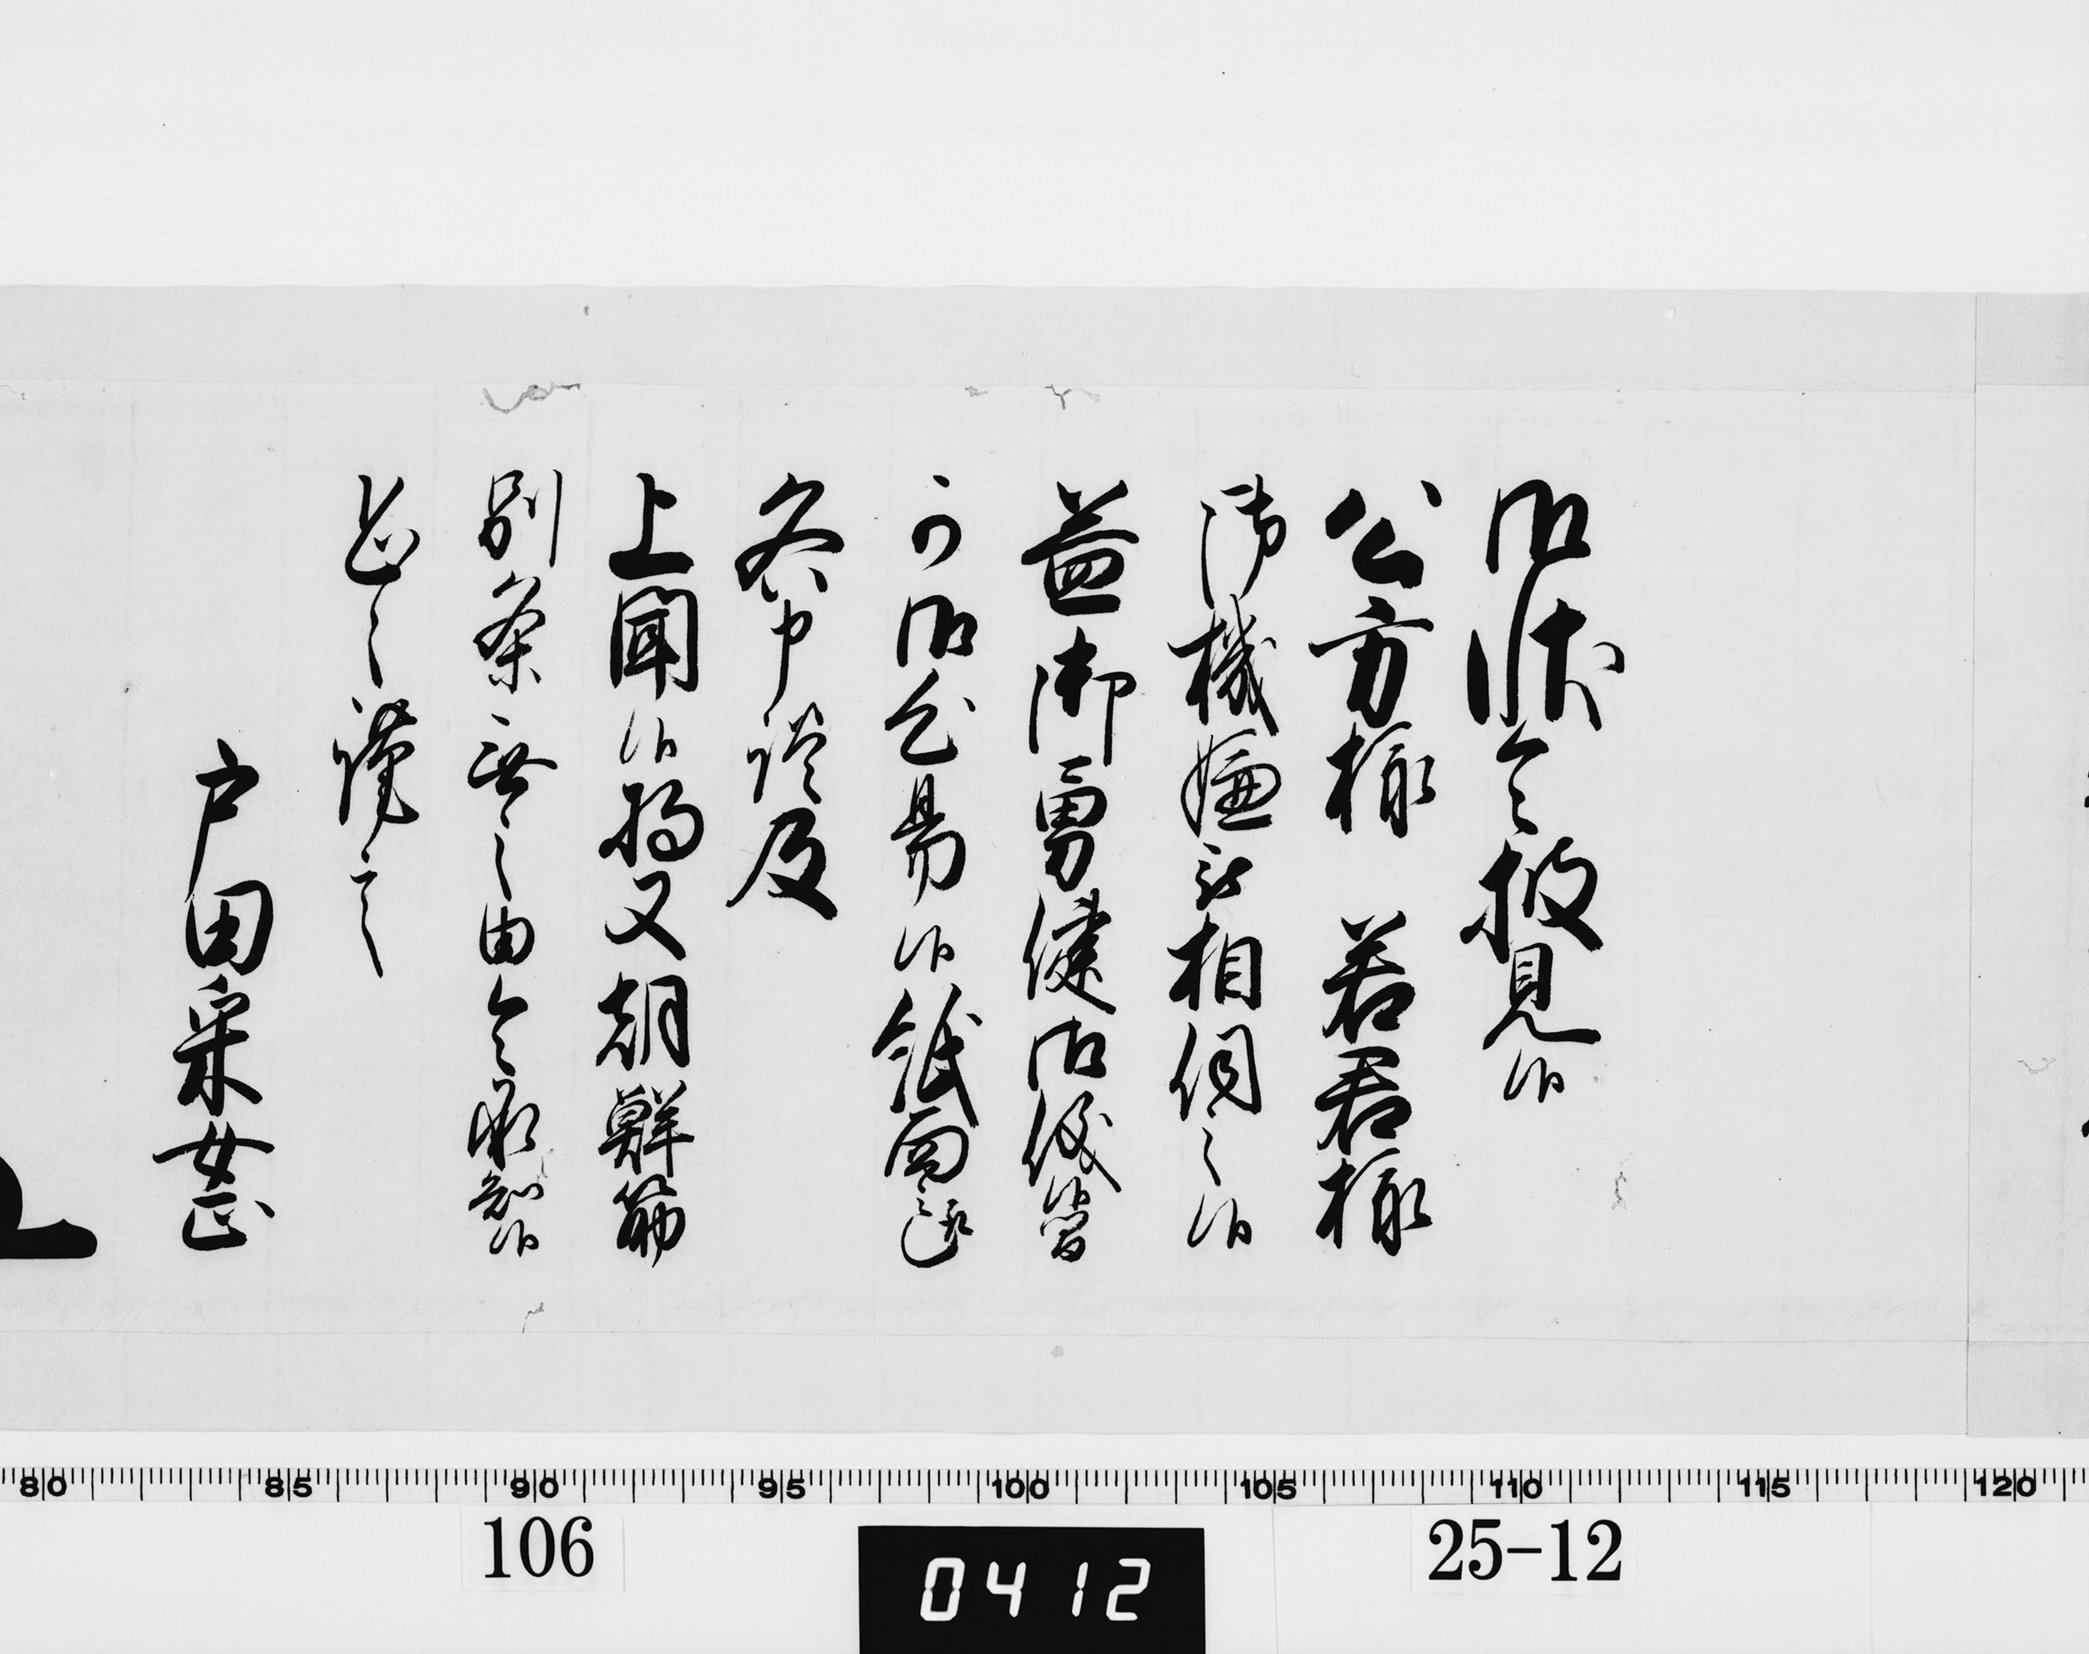 御状令披見候
公方様 若君様
御機嫌被相伺之候
益御勇健御儀皆
可御心易候紙面趣
各申談及
上聞候将又朝鮮筋
別条無之由令承知候
恐々謹言
戸田采女正
80 85 90 95 100 105 110 115 120
106
0412
25-12